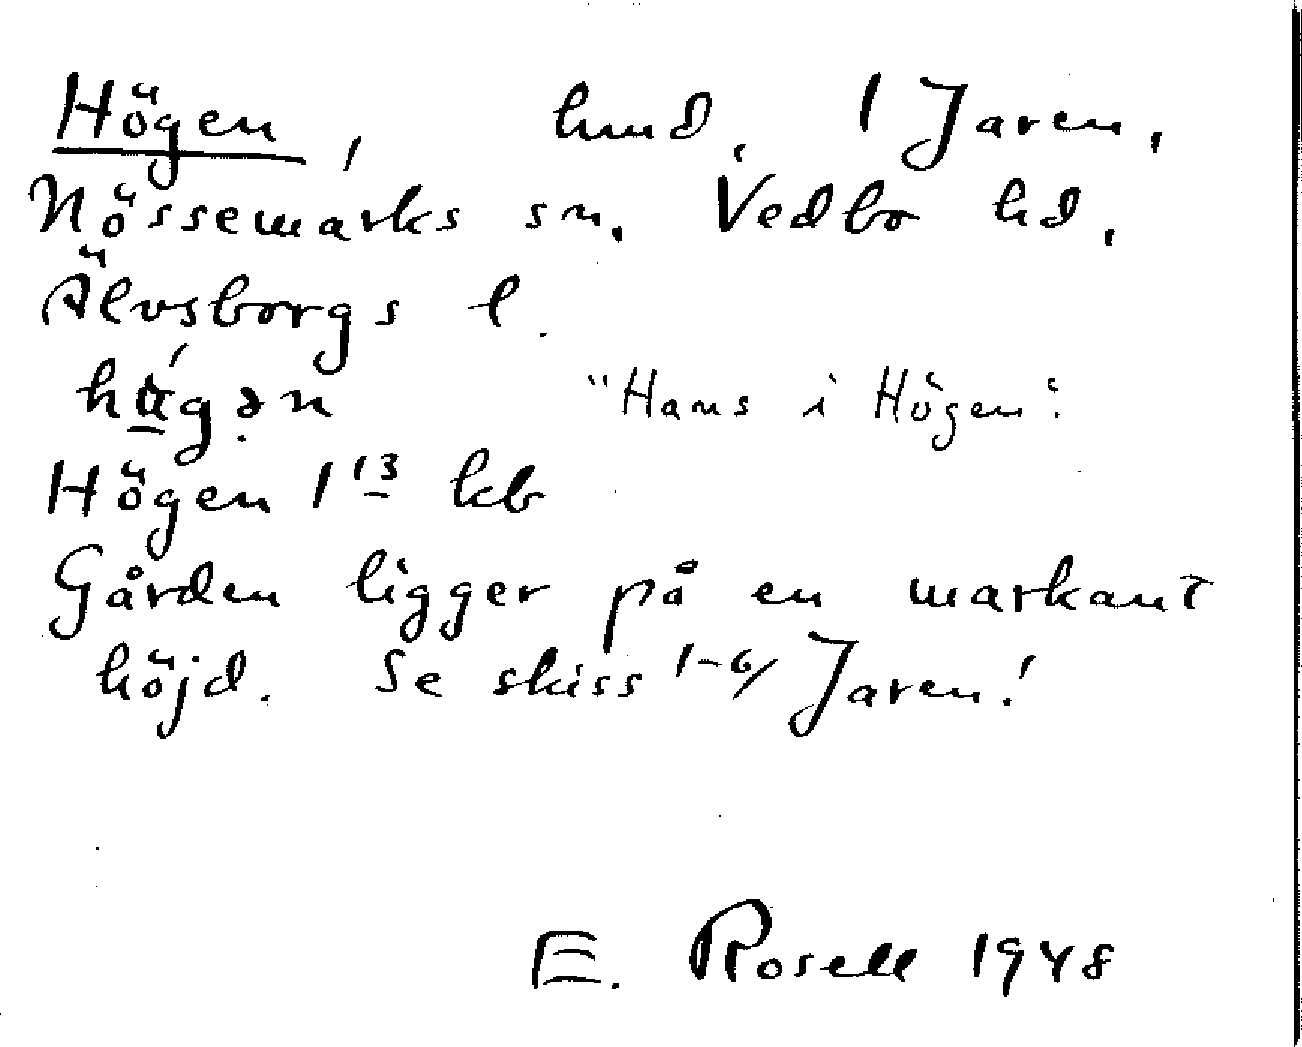 Högen, hmd. 1 Jaren,
Nössemarks sn. Vedbo hd,
Älvsborgs l.
"Hans i Högen".
Högen 1 13 kb
Gården ligger på en markant
höjd. Se skiss 1-6/ Jaren!
E. Rosell 1948